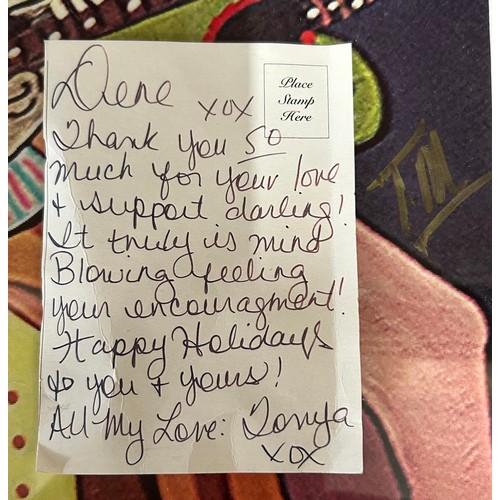 Dene
xox
Place
Stamp
Here
Thank you so
much for your love
+ support darling!
It truly is mind
Blowing feeling
your encouragment!
Happy Holidays
to you + yours!
All My Love: Tonya
xox